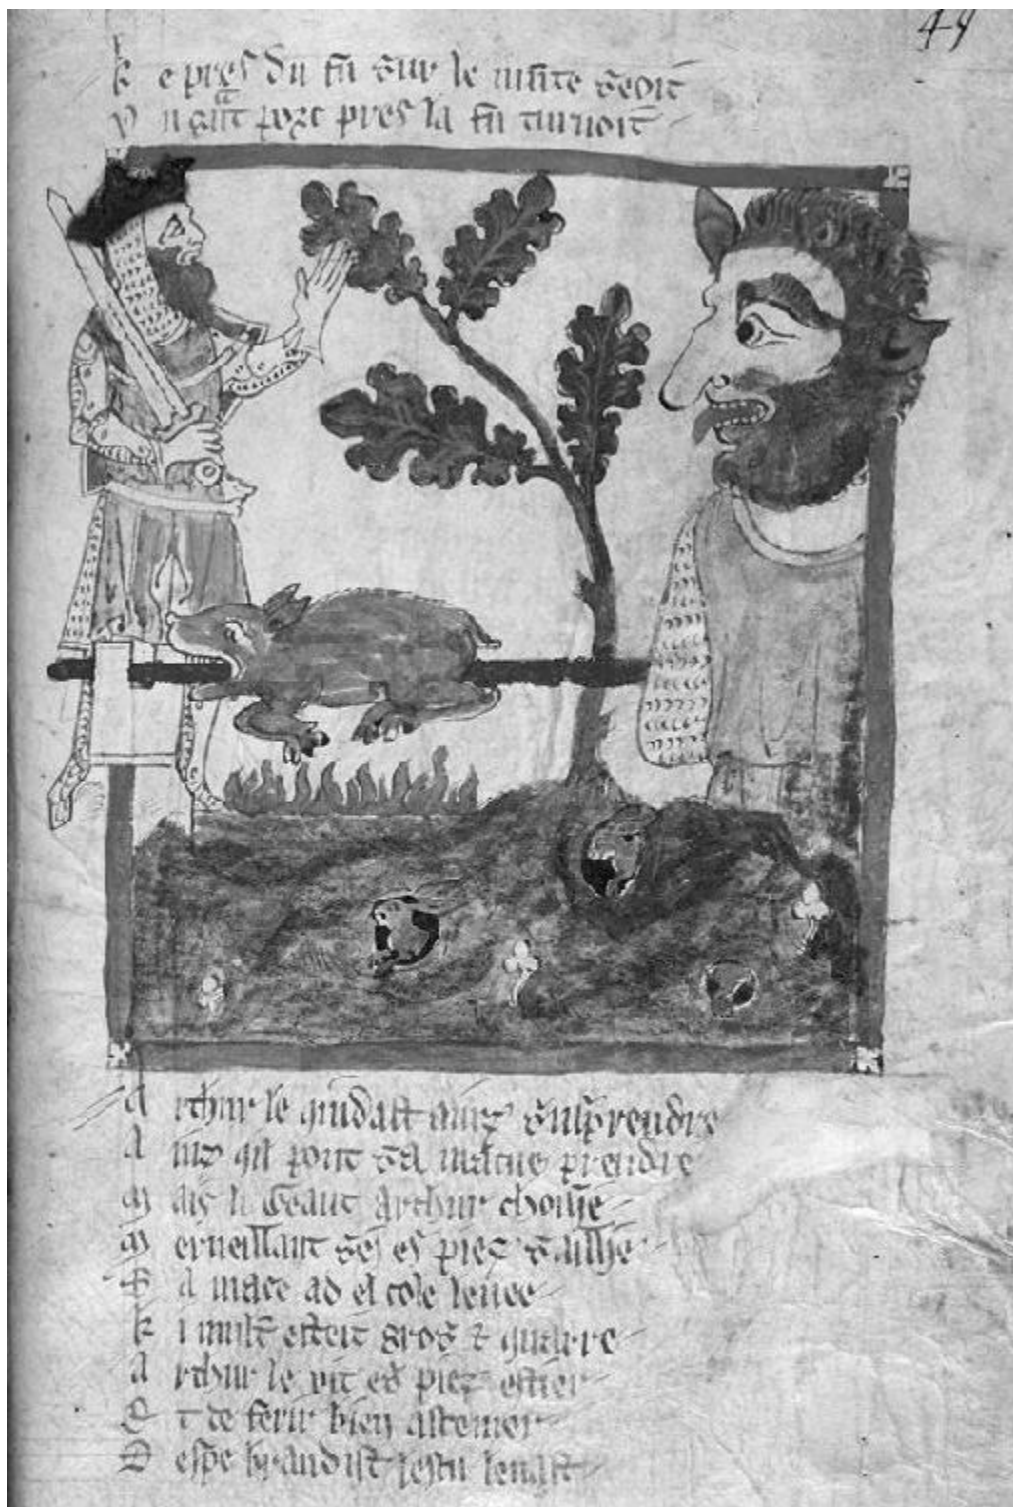 49
k e pres du fu sur le munte seoit
v n gnt porc pres la fu turnoit
A rthur le quidast ainz susprendre
A inz qil pout sa mascue prendre
M ais li Geant Arthur choisie
M erueillant sei es piez saillie
S a mace ad el cole leuee
k i mult esteit gros & quarre
A rthur le vit es piez ester
E t de ferir bien
brandist lescu leuast